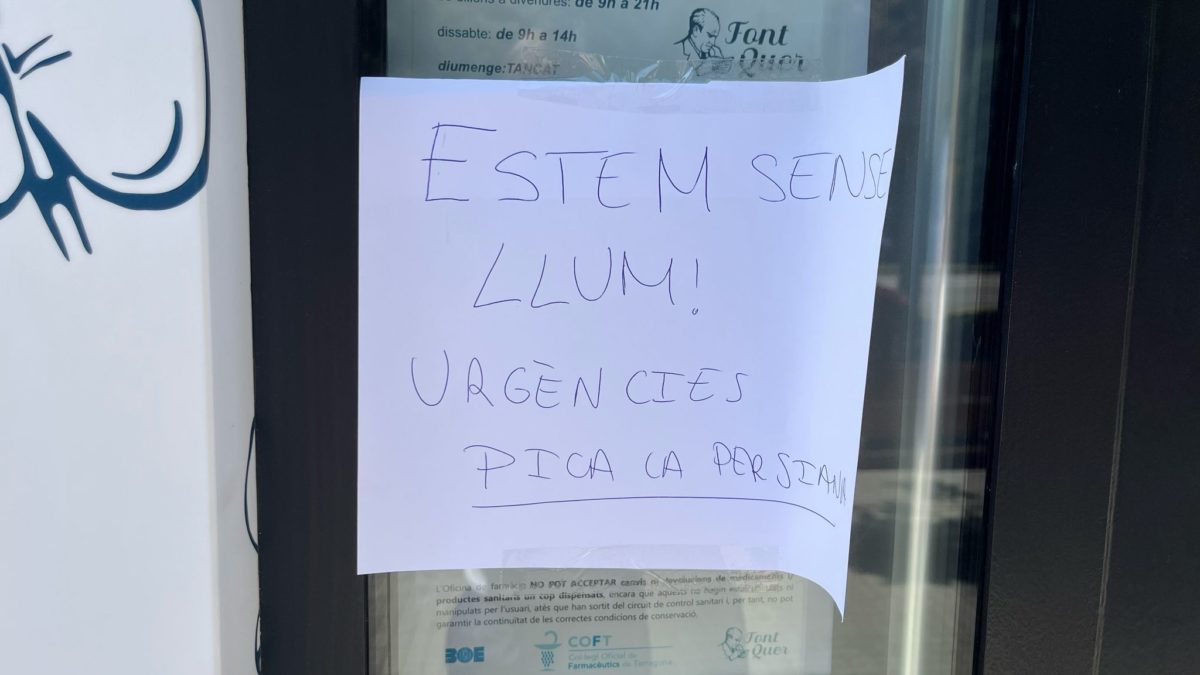 de dilluns a divendres: de 9h a 21h
dissabte: de 9h a 14h
diumenge:TANCAT
Font
Quer
ESTEM SENSE
LLUM!
URGÈNCIES
PICA LA PERSIANA
L'Oficina de farmàcia NO POT ACCEPTAR canvis ni devolucions de medicaments i
productes sanitaris un cop dispensats, encara que aquests no hagin estat ni
manipulats per l'usuari, atès que han sortit del circuit de control sanitari i, per tant, no pot
garantir la continuïtat de les correctes condicions de conservació.
BOE
COFT
Col·legi Oficial de
Farmacèutics de Tarragona
Font
Quer